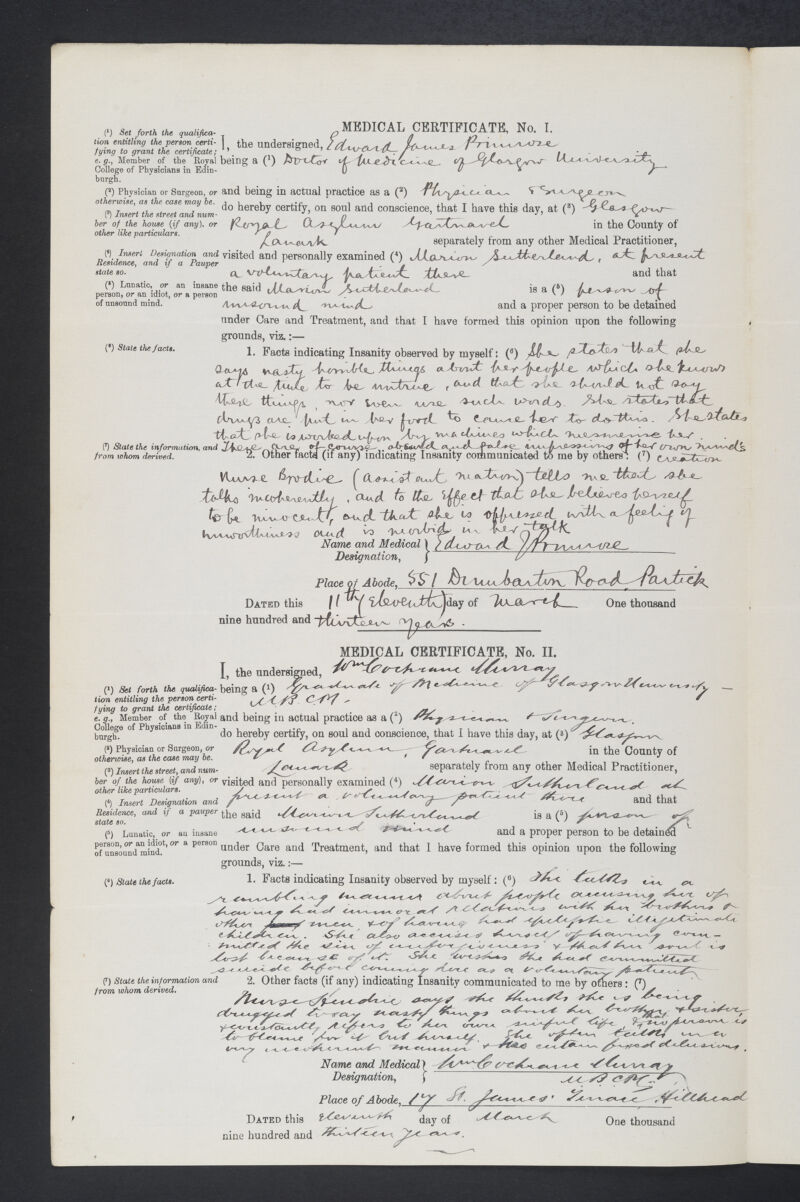 MEDICAL CERTIFICATE, No. I.
(¹) Set forth the qualifica-
tion entitling the person certi-
fying to grant the certificate;
e.g., Member of the Royal
College of Physicians in Edin-
burgh.
I, the undersigned, Edward James Primrose
being a (¹) Doctor of Medicine of Glasgow University
(²) Physician or Surgeon, or
otherwise, as the case may be.
and being in actual practice as a (²) Physician & Surgeon
do hereby certify, on soul and conscience, that I have this day, at (³) Glasgow
(³) Insert the street and num-
ber of the house (if any), or
other like particulars.
Royal Asylum Gartnavel in the County of
Lanark separately from any other Medical Practitioner,
(⁴) Insert Designation and
Residence, and if a Pauper
state so.
visited and personally examined (⁴) Marion Sutherland, at present
a voluntary patient there and that
(⁵) Lunatic, or an insane
person, or an idiot, or a person
of unsound mind.
the said Marion Sutherland is a (⁵) person of
unsound mind and a proper person to be detained
under Care and Treatment, and that I have formed this opinion upon the following
grounds, viz.:—
(⁶) State the facts.
1. Facts indicating Insanity observed by myself: (⁶) She states that she
says nasty horrible things about her people which she knows
at the time to be untrue, and that she should not say
these things, nor even use such words. She states that
drugs are put in her food to cause her to do this. She states
that she is worked upon by machines which mesmerise her.
These are, of course, absurd and false impressions of her own mind's
creation
(⁷) State the information, and
from whom derived.
2. Other facts (if any) indicating Insanity communicated to me by others: (⁷)
Nurse Brodie (Assistant matron) tells me that she
talks incoherently, and to the effect that she believes herself
to be innocent, and that she is oppressed with a feeling of
unworthiness and is morbid in her talk
Name and Medical Designation, Edward J Primrose
Place of Abode, 551 Dumbarton Road, Partick
DATED this 11th (Eleventh) day of March One thousand
nine hundred and thirteen years.
MEDICAL CERTIFICATE, No. II.
(¹) Set forth the qualifica-
tion entitling the person certi-
fying to grant the certificate;
e.g., Member of the Royal
College of Physicians in Edin-
burgh.
I, the undersigned, Wm Cochrane Murray
being a (¹) Graduate of Medicine of Glasgow University –
M.B. C.M.
(²) Physician or Surgeon, or
otherwise, as the case may be.
and being in actual practice as a (²) Physician & Surgeon.
do hereby certify, on soul and conscience, that I have this day, at (³) Glasgow
(³) Insert the street, and num-
ber of the house (if any), or
other like particulars.
Royal Asylum, Gartnavel in the County of
Lanark separately from any other Medical Practitioner,
(⁴) Insert Designation and
Residence, and if a pauper
state so.
visited and personally examined (⁴) Marion Sutherland at
present a voluntary patient there and that
(⁵) Lunatic, or an insane
person, or an idiot, or a person
of unsound mind.
the said Marion Sutherland is a (⁵) person of
unsound mind and a proper person to be detained
under Care and Treatment, and that I have formed this opinion upon the following
grounds, viz.:—
(⁶) State the facts.
1. Facts indicating Insanity observed by myself: (⁶) She talks in a
rambling manner about people accusing her of
having had immoral relations with her brothers &
other men, & of having had epileptic illegitimate
children. She also accuses herself of having com-
mitted the sin of unforgiveness & that her soul is
lost because of it. She wishes she had committed
suicide before coming here as a voluntary patient.
(⁷) State the information and
from whom derived.
2. Other facts (if any) indicating Insanity communicated to me by others: (⁷)
Nurse Hendrie says she thinks she is being
drugged to say nasty things about her brother & sister,
& constantly refers to her own sinful life & that no person is
to blame for it but herself. She often talks in a
very incoherent manner & has certain fixed delusions.
Name and Medical Designation, Wm Cochrane Murray
M.B. C.M.
Place of Abode, 17 St. James' Terrace, Hillhead
DATED this eleventh day of March One thousand
nine hundred and thirteen years.